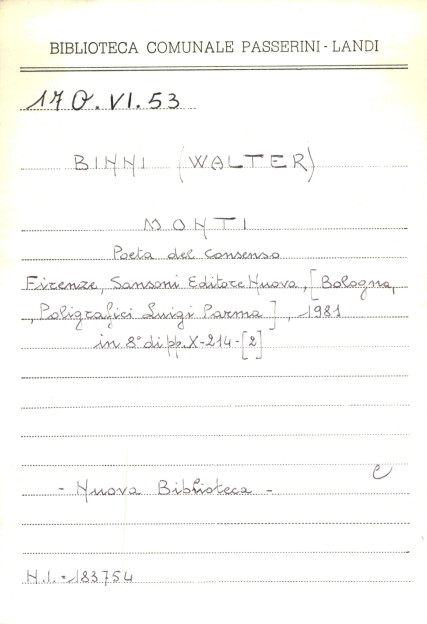 BIBLIOTECA COMUNALE PASSERINI-LANDI
170.VI.53
BINNI (WALTER)
MONTI
Poeta del consenso
Firenze, Sansoni Editore Nuova, [Bologna,
, Poligrafici Luigi Parma], 1981
in 8° di pp. X-214-[2]
e
- Nuova Biblioteca -
N.I. = 183754